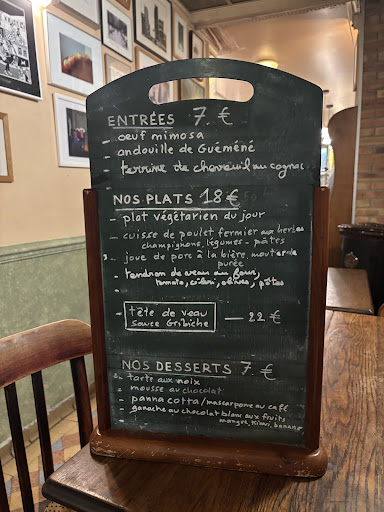 ENTRÉES 7. €
- oeuf mimosa
- andouille de Guéméné
- terrine de chevreuil au cognac
NOS PLATS 18 €
- plat végétarien du jour
- cuisse de poulet fermier aux herbes
champignons, légumes - pâtes
- joue de porc à la bière, moutarde
purée
- tendron de veau au four,
tomate, olives, pâtes
tête de veau
sauce Gribiche — 22 €
NOS DESSERTS 7. €
- tarte aux noix
- mousse au chocolat
- panna cotta/mascarpone au café
- ganache au chocolat blanc aux fruits
mangue, kiwi, banane